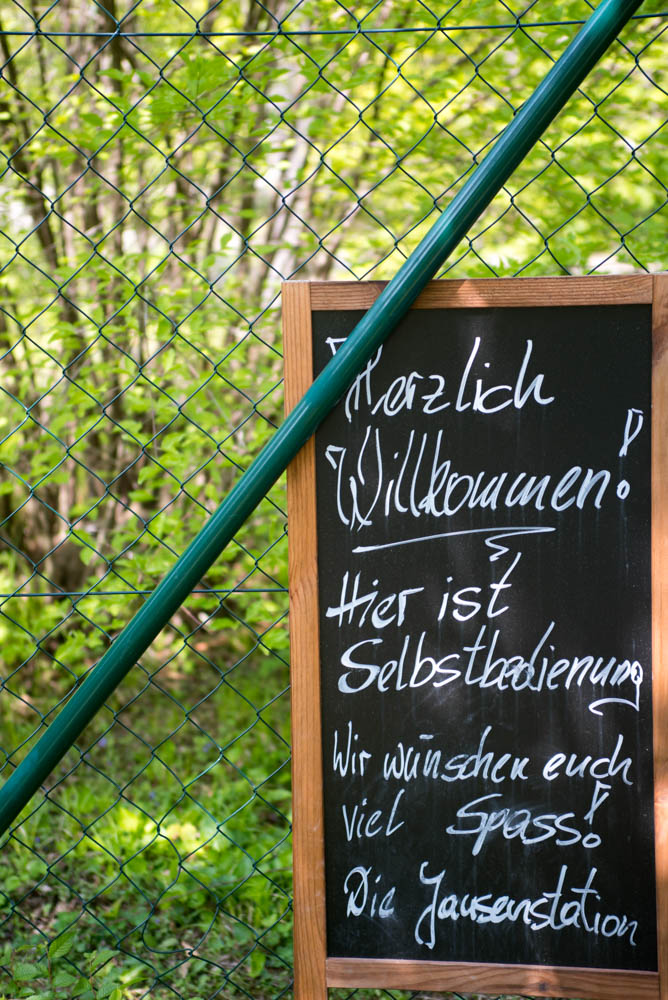 Herzlich
Willkommen!
Hier ist
Selbstbedienung
Wir wünschen euch
viel Spass!
Die Jausenstation